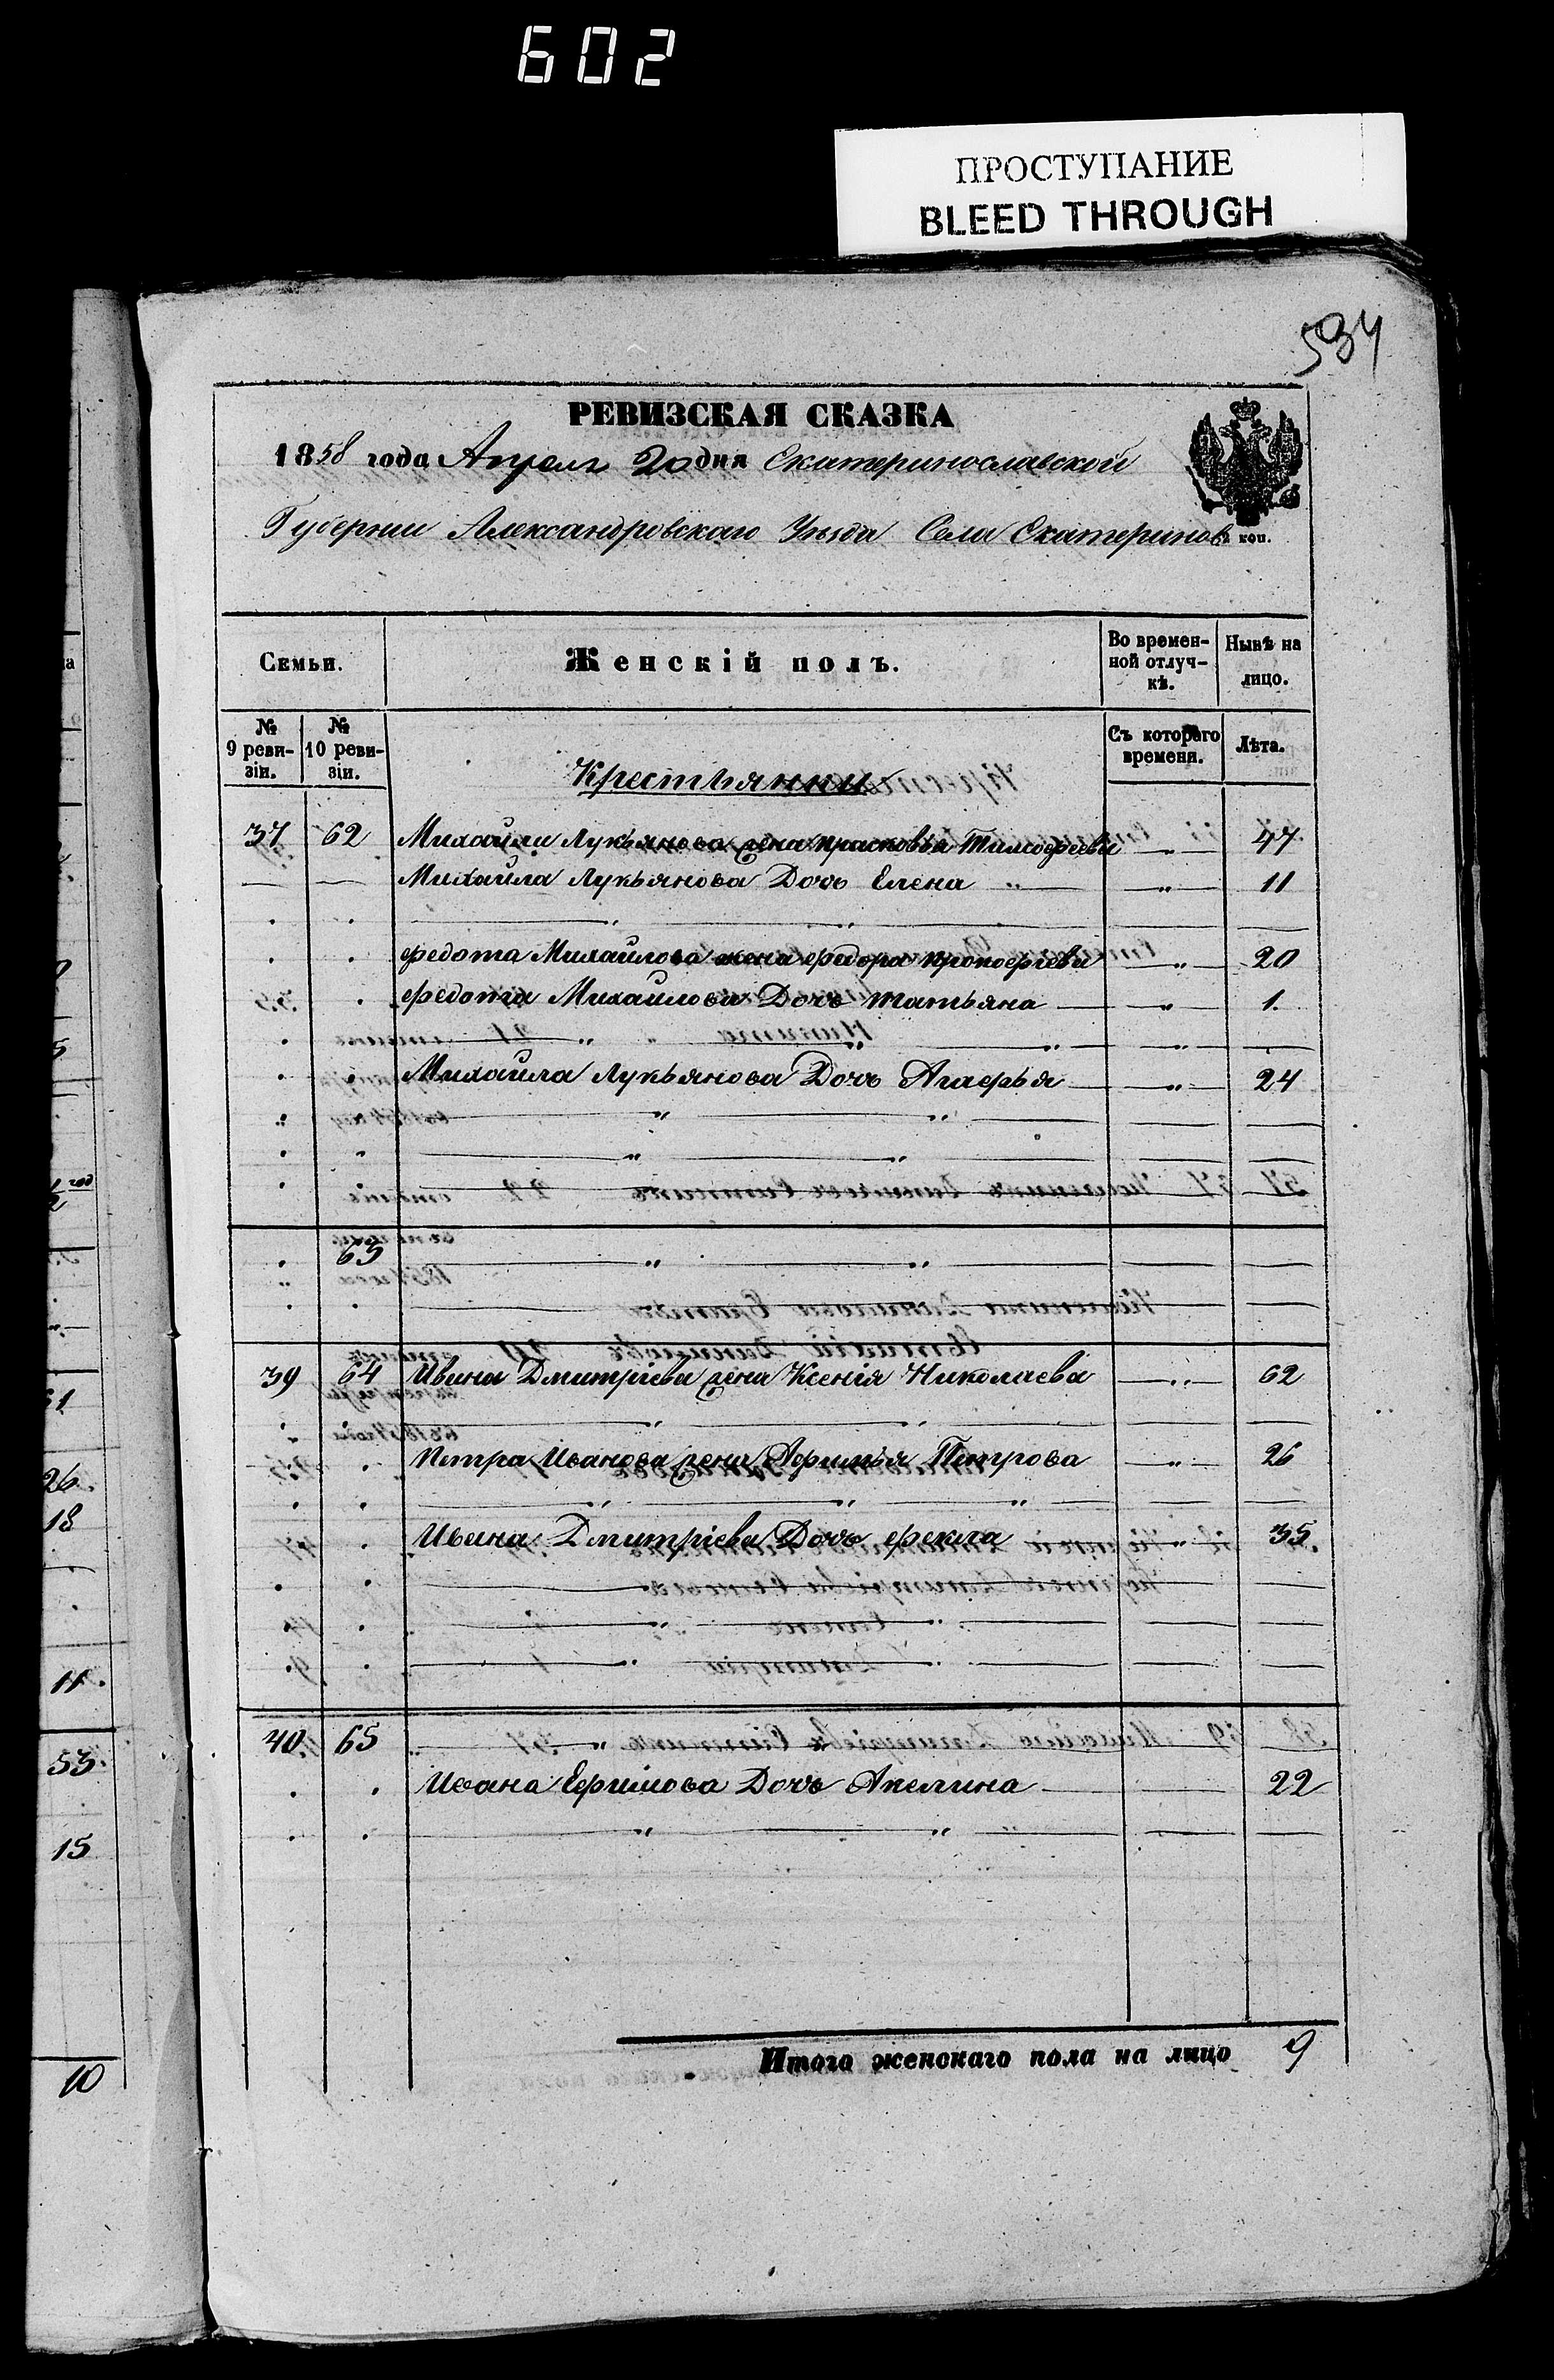 602
ПРОСТУПАНИЕ
BLEED THROUGH
534
РЕВИЗСКАЯ СКАЗКА
1858 года Апреля 20 дня Екатеринославской
Губернии Александровскаго Уезда Села Екатеринов
коп.
Семьи. Женскій полъ. Во времен-ной отлуч-кѣ. Нынѣ на лицо.
№ 9 реви-зіи. № 10 реви-зіи. Съ котораго времени. Лѣта.
Крестьянни
37 62 Михайли Лукьянова жена Прасковья Тимофеева 47
Михайла Лукьянова Дочь Елена 11
Федота Михайлова жена Федора Прокофіева 20
Федота Михайлова Дочь Татьяна 1.
Михайла Лукьянова Дочь Агафья 24
63
39 64 Ивана Дмитріева жена Ксенія Николаева 62
Петра Иванова жена Афимья Петрова 26
Ивана Дмитріева Дочь Фекла 35
40 65
Ивана Ефимова Дочь Акелина 22
Итого женскаго пола на лицо 9
26.
18
11.
53.
15
10